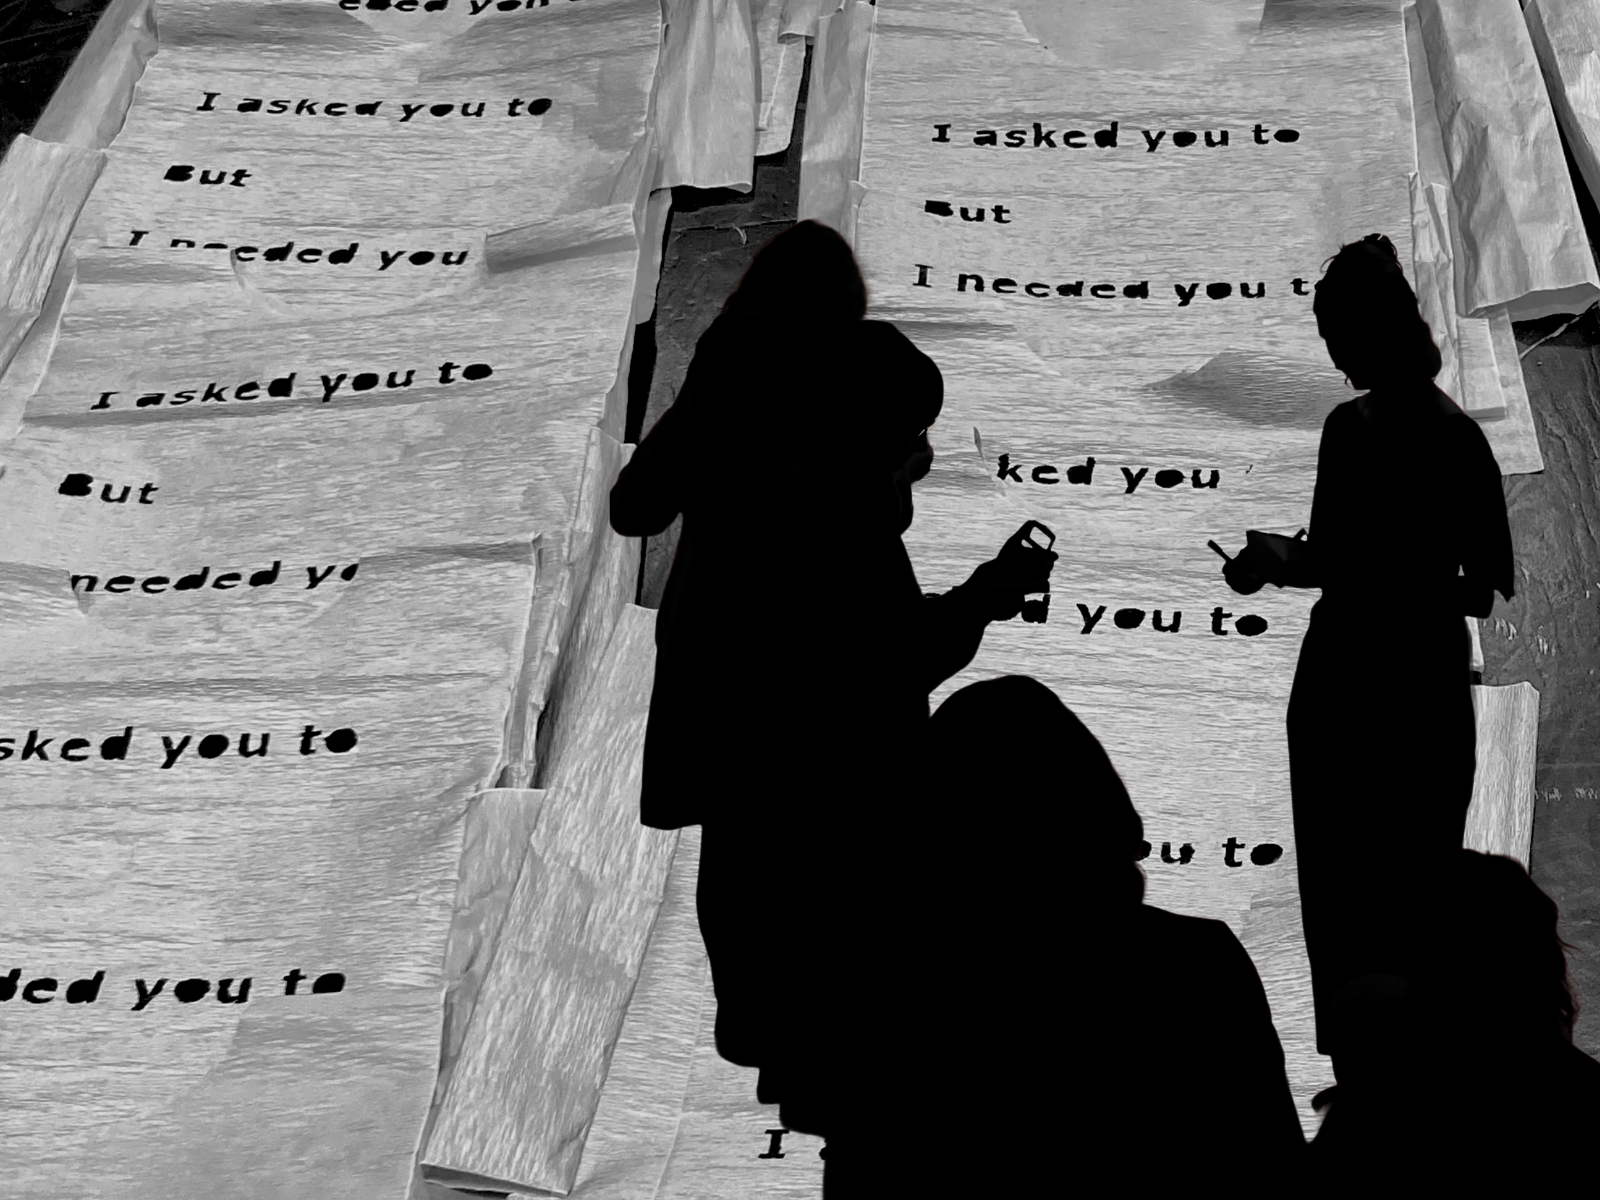 I asked you to
But
I needed you
I asked you to
But
needed
asked you to
you to
I asked you to
But
I needed you
ked you
you to
to
I